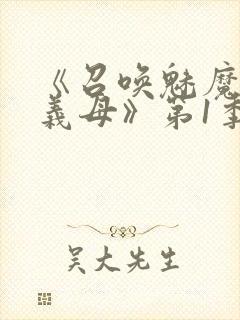 《召唤魅魔
義母》第1季
吴大先生